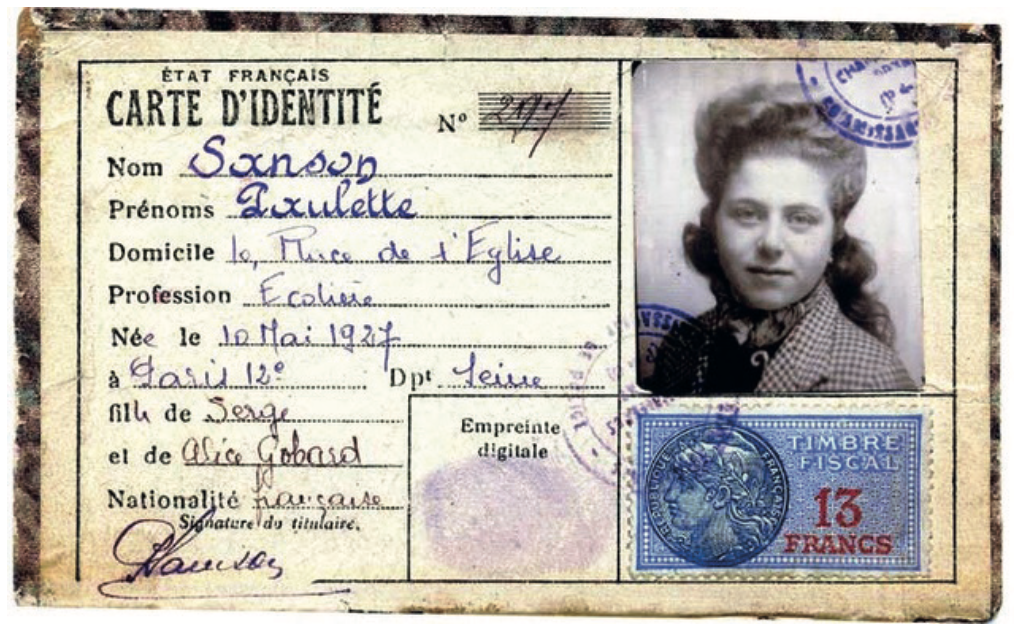 ÉTAT FRANÇAIS
CARTE D'IDENTITÉ
Nº 297
Nom Sanson
Prénoms Paulette
Domicile 10, Place de l'Eglise
Profession Ecolière
Née le 10 Mai 1927
à Paris 12e Dpt Seine
fille de Serge
et de Alice Gobard
Nationalité française
Signature du titulaire.
Empreinte
digitale
TIMBRE
FISCAL
13
FRANCS
RÉPUBLIQUE FRANÇAISE